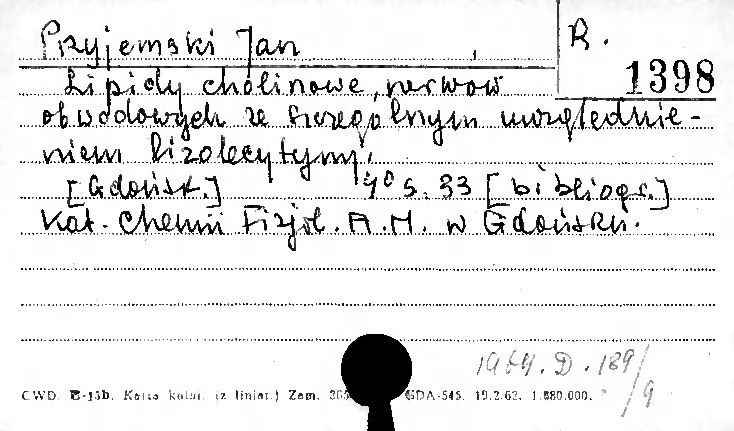 Przyjemski Jan
R.
1398
Lipidy cholinowe, nerwów
obwodowych ze szczególnym uwzględnie-
niem lizolecytyny.
[Gdańsk.] 40 s. 33 [bibliogr.]
Kat. Chemii Fizjol. A.M. w Gdańsku.
1964. D. 189/9
CWD. B-15b. Karta katal. (z liniat.) Zam. GDA-545. 19.2.62. 1.880.000.